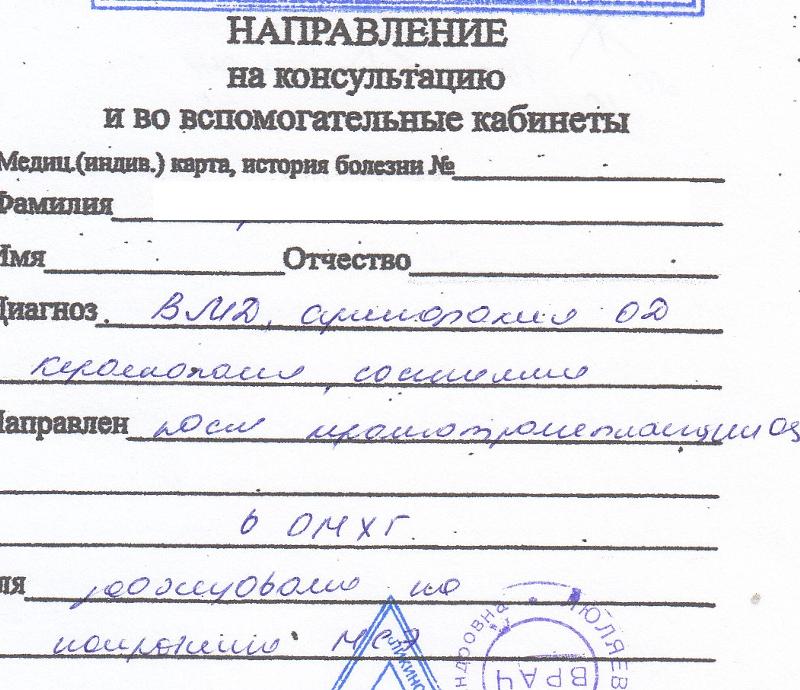 НАПРАВЛЕНИЕ
на консультацию
и во вспомогательные кабинеты
Медиц.(индив.) карта, история болезни №
Фамилия
Имя Отчество
Диагноз ВМД, артифакия ОД
кератопатия, состояние
Направлен после кератотрансплантации ОД
в ОМХГ
для на
МСЭ
ВРАЧ